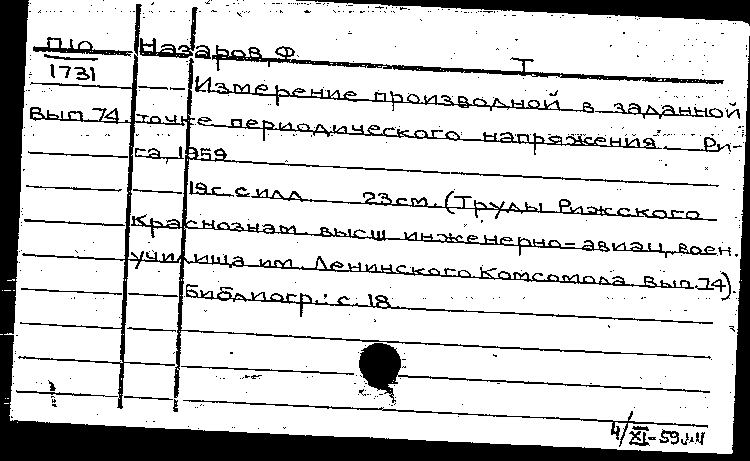 П10 Назаров, Ф. Т
1731 Измерение производной в заданной
Вып. 74. точке периодического напряжения. Ри-
га, 1959
19с. с илл. 23см. (Труды Рижского
Краснознам. высш. инженерно-авиац. воен.
училища им. Ленинского Комсомола. Вып. 74).
Библиогр.: с. 18.
4/XI-59